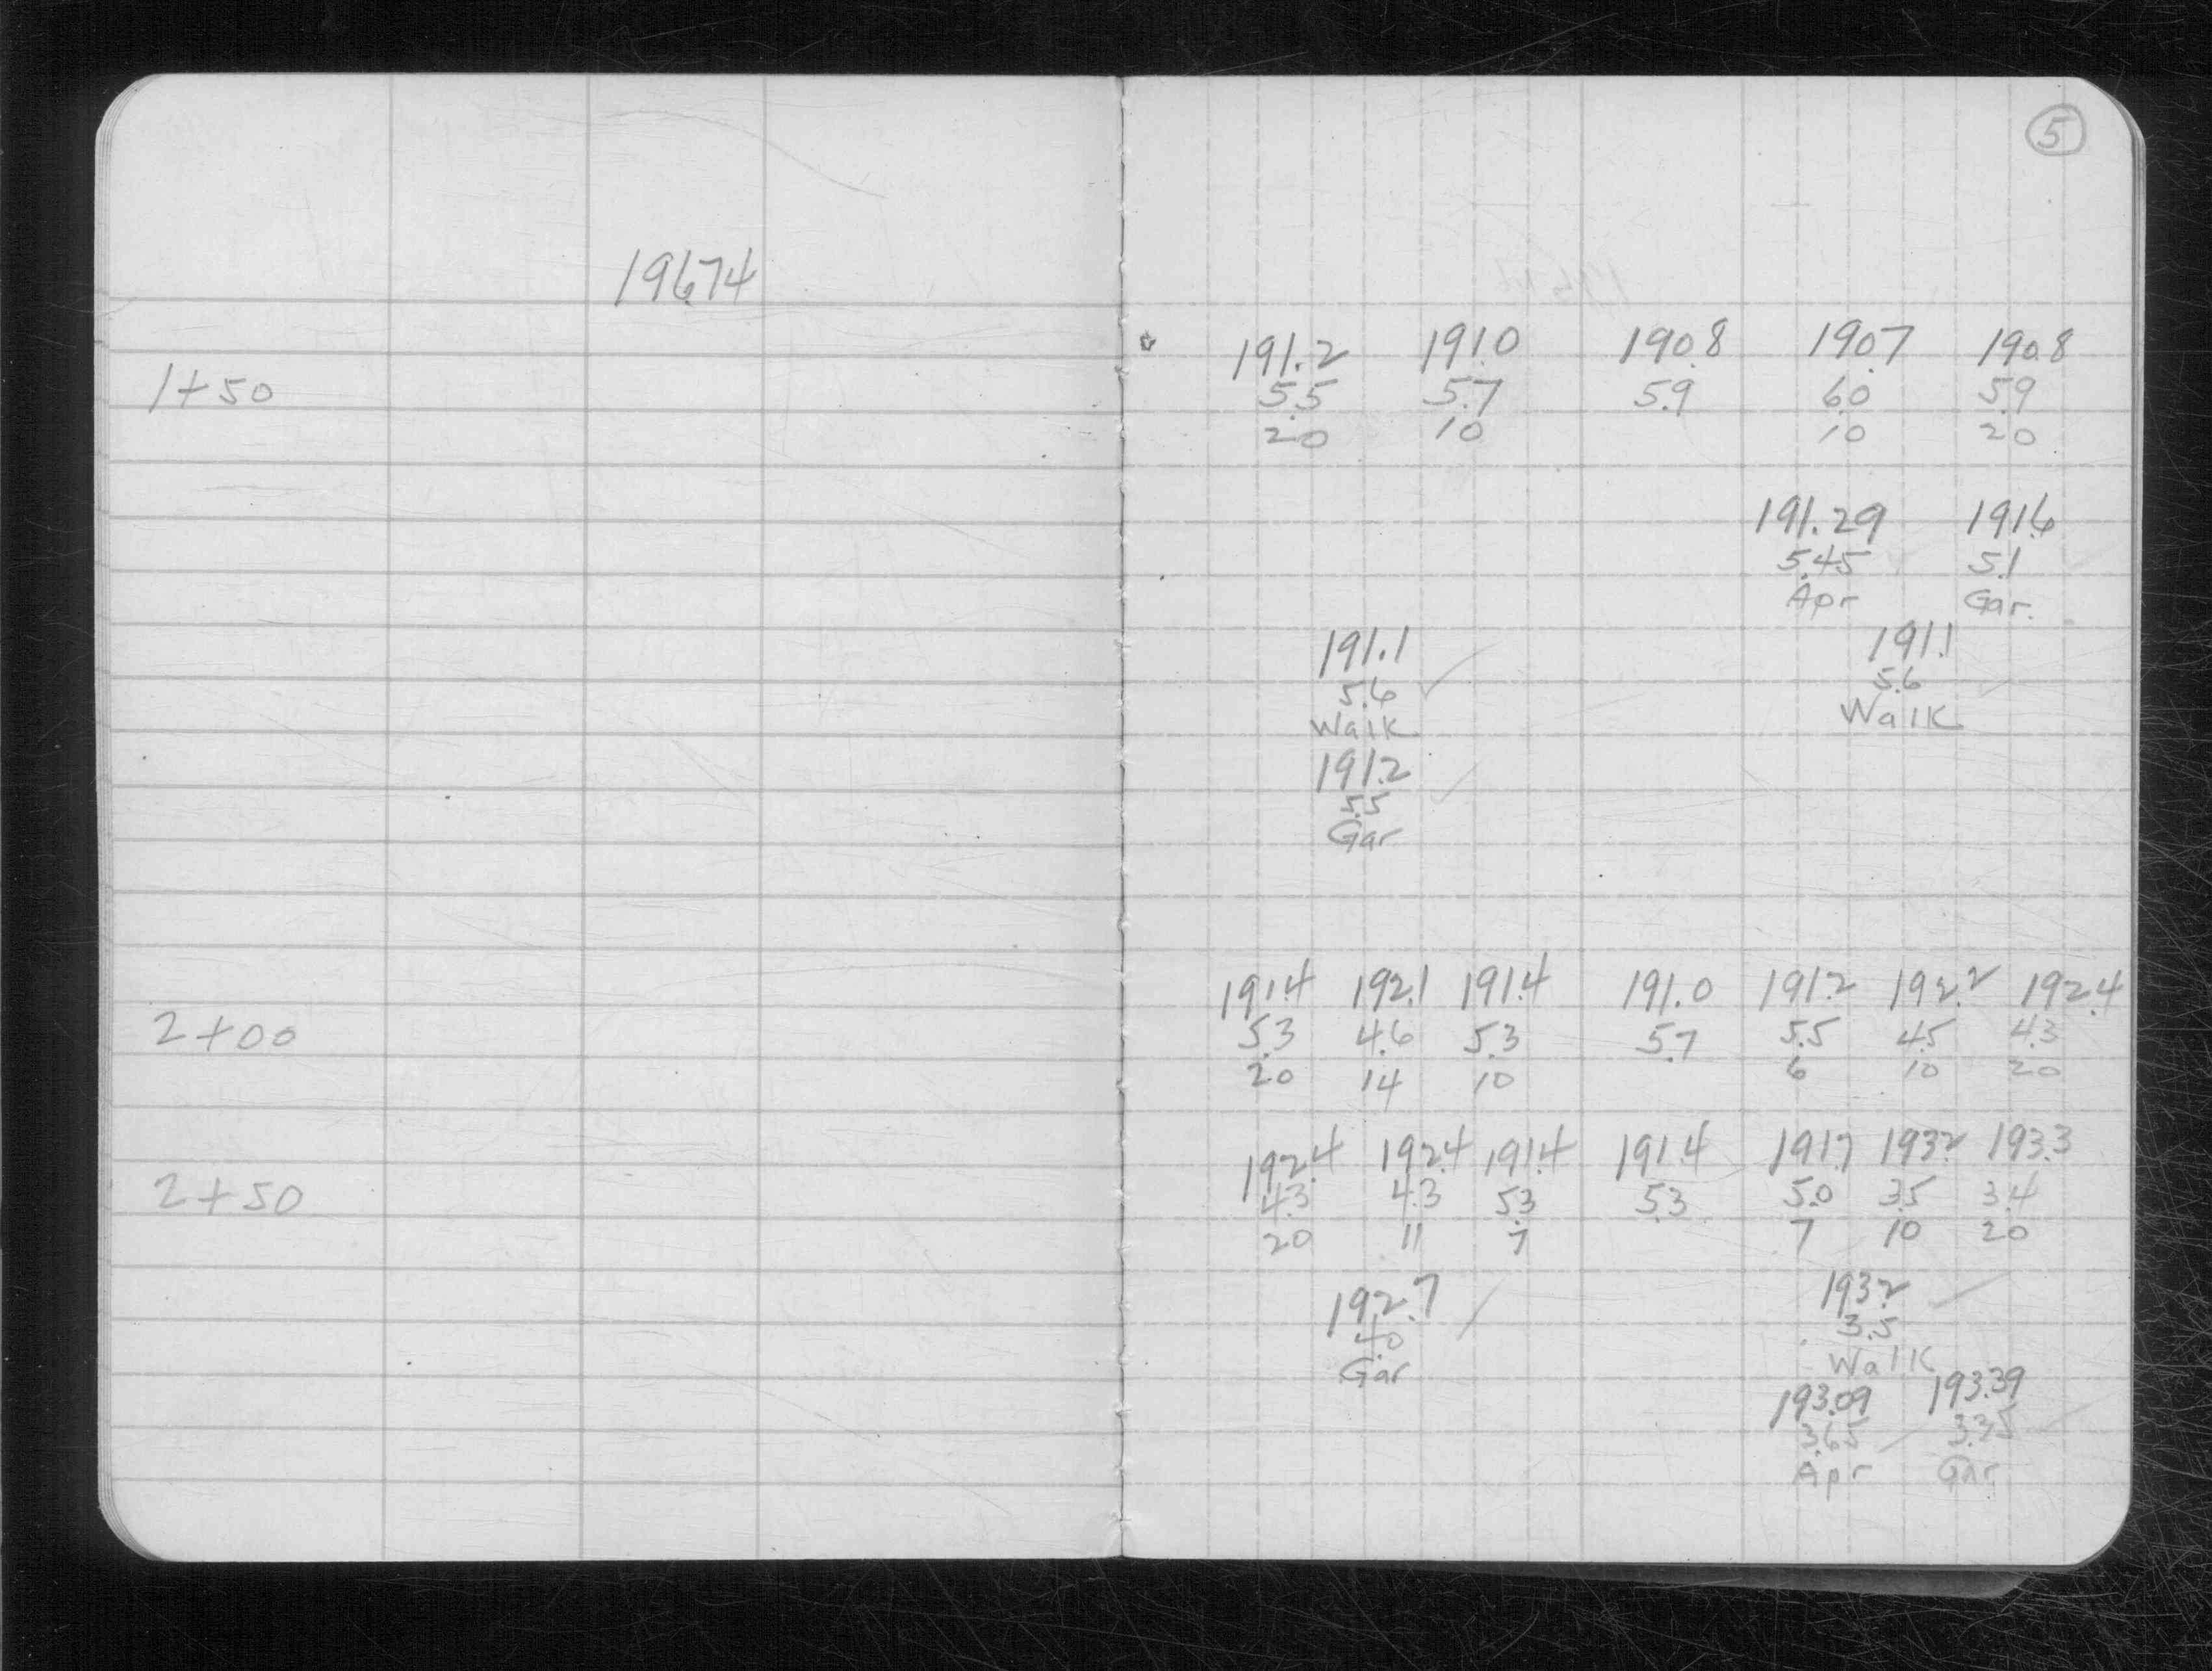 5
196.74
191.2 191.0 190.8 190.7 190.8
1+50 5.5 5.7 5.9 6.0 5.9
20 10 10 20
191.29 191.6
5.45 5.1
Apr Gar.
191.1 191.1
5.6 5.6
Walk Walk
191.2
5.5
Gar
191.4 192.1 191.4 191.0 191.2 192.2 192.4
2+00 5.3 4.6 5.3 5.7 5.5 4.5 4.3
20 14 10 6 10 20
192.4 192.4 191.4 191.4 191.7 193.2 193.3
2+50 4.3 4.3 5.3 5.3 5.0 3.5 3.4
20 11 7 7 10 20
192.7 193.2
4.0 3.5
Gar Walk
193.09 193.39
3.65 3.35
Apr Gar